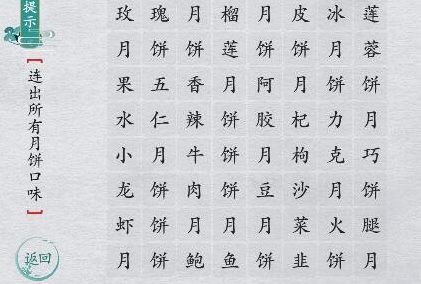 提示
[连出所有月饼口味]
返回
玫瑰月榴月皮冰莲
月饼饼莲饼饼月蓉
果五香月阿月饼饼
水仁辣饼胶杞力月
小月牛饼月枸克巧
龙饼肉饼豆沙月饼
虾饼月月月菜火腿
月饼鲍鱼饼韭饼月